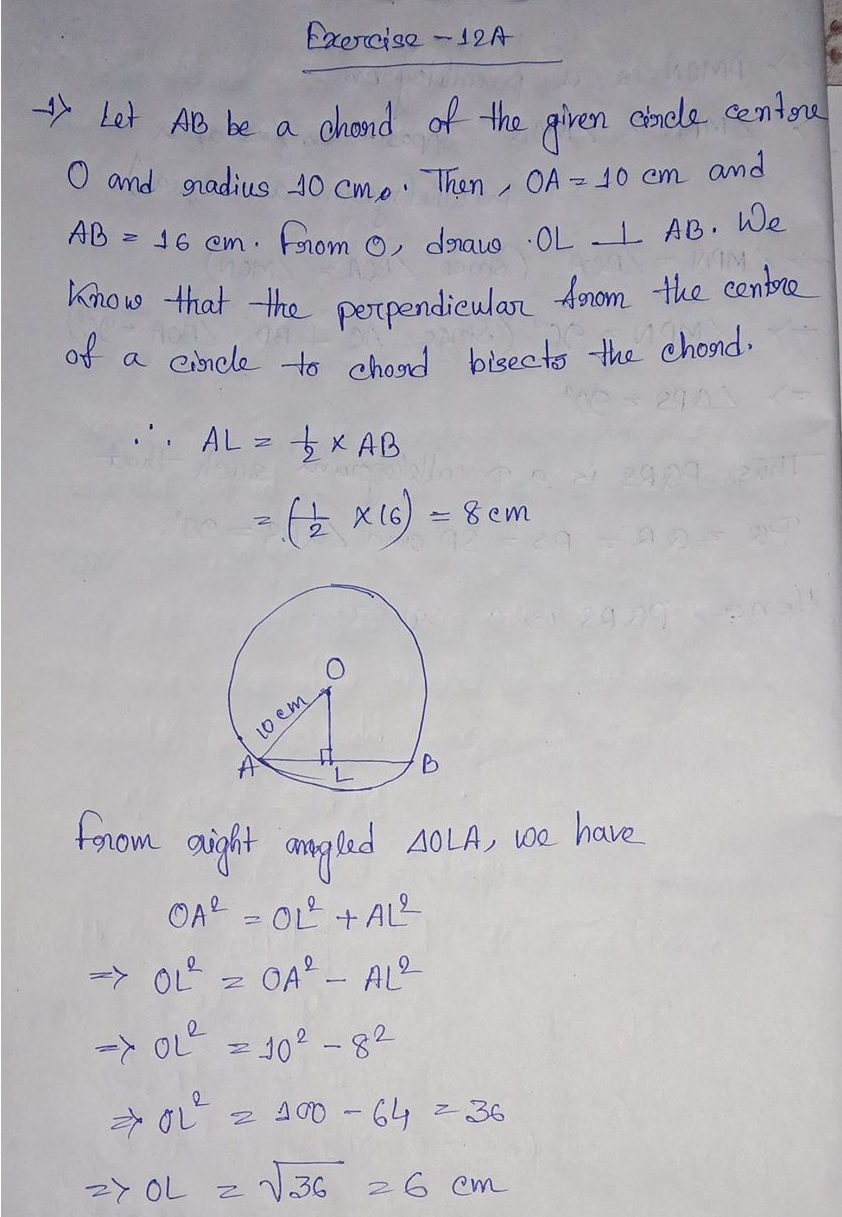 Exercise - 12A
1> Let AB be a chord of the given circle centre
O and radius 10 cm. Then, OA = 10 cm and
AB = 16 cm. From O, draw OL ⊥ AB. We
Know that the perpendicular from the centre
of a circle to chord bisects the chord.
∴ AL = 1/2 × AB
= (1/2 × 16) = 8 cm
O
10 cm
A L B
From right angled ΔOLA, we have
OA² = OL² + AL²
=> OL² = OA² - AL²
=> OL² = 10² - 8²
=> OL² = 100 - 64 = 36
=> OL = √36 = 6 cm